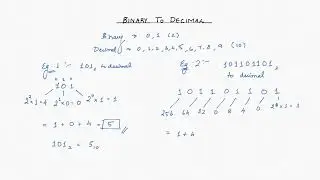 BINARY TO DECIMAL
Binary → 0, 1 (2)
Decimal → 0, 1, 2, 3, 4, 5, 6, 7, 8, 9 (10)
Eg 1 :- 101₂ to decimal
2 1 0
1 0 1
2²×1=4 2¹×0=0 2⁰×1=1
= 1 + 0 + 4 = 5
101₂ = 5₁₀
Eg 2 :- 101101101₂
to decimal
1 0 1 1 0 1 1 0 1
256 64 32 0 8 4 0 2⁰×1=1
= 1+4